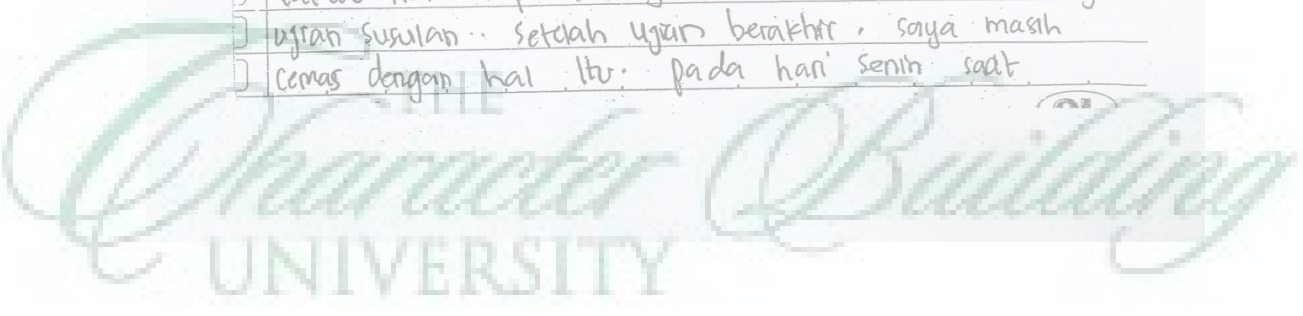 ujian susulan.. setelah ujian berakhir, saya masih
cemas dengan hal itu. pada hari senin saat
THE
Character Building
UNIVERSITY